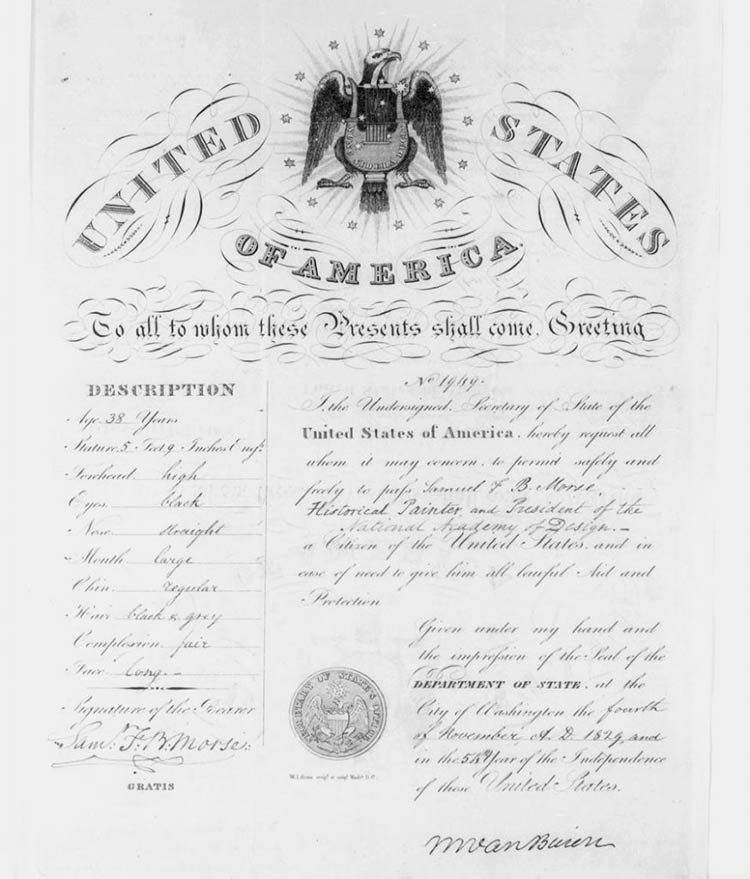 UNITED STATES
OF AMERICA.
To all to whom these Presents shall come. Greeting
DESCRIPTION
Age 38 Years
Stature 5 Feet 9 Inches Engh.
Forehead high
Eyes black
Nose straight
Mouth large
Chin regular
Hair black & grey
Complexion fair
Face long
Signature of the Bearer
Saml. F. B. Morse.
GRATIS
No 1949.
I, the Undersigned, Secretary of State of the
United States of America, hereby request all
whom it may concern, to permit safely and
freely to pass Samuel F. B. Morse,
Historical Painter and President of the
National Academy of Design.
a Citizen of the United States, and in
case of need to give him all lawful Aid and
Protection
Given under my hand and
the impression of the Seal of the
DEPARTMENT OF STATE, at the
City of Washington the fourth
of November A. D. 1829, and
in the 54th Year of the Independence
of these United States.
SECRETARY OF STATE'S OFFICE
M Van Buren